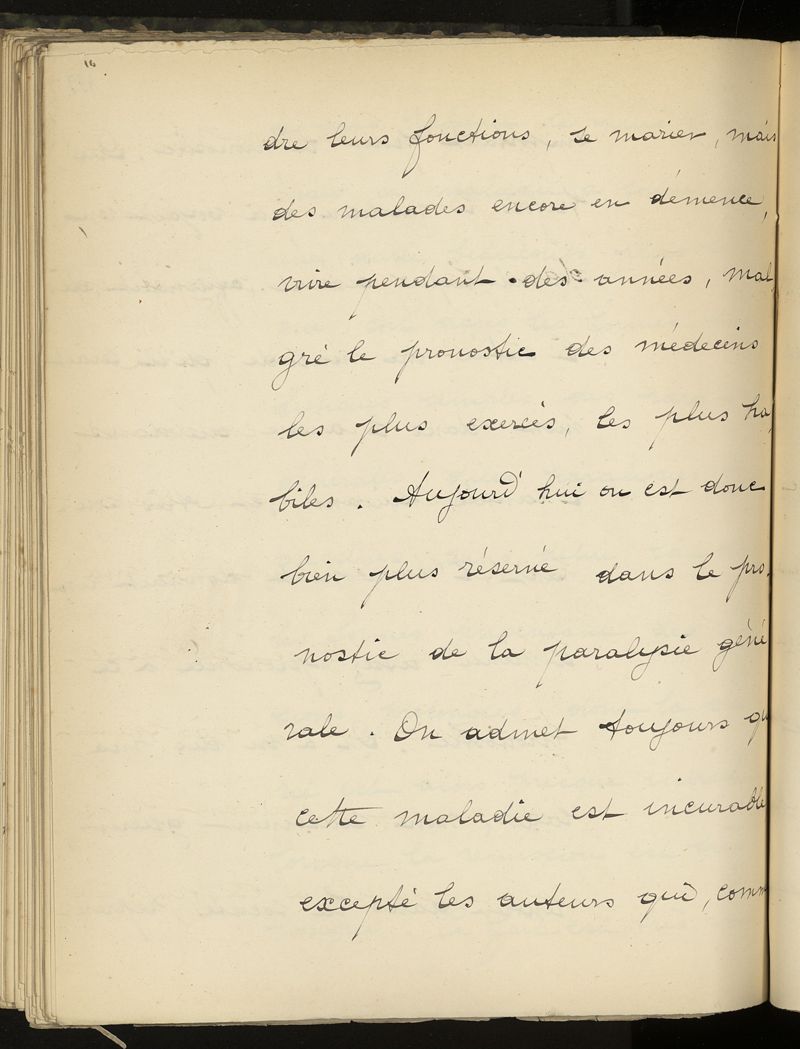 16
dre leurs fonctions, se marier, mais
des malades encore en démence,
vivre pendant des années, mal
gré le pronostic des médecins
les plus exercés, les plus ha
biles. Aujourd'hui on est donc
bien plus réservé dans le pro
nostic de la paralysie géné
rale. On admet toujours qu
cette maladie est incurable
excepté les auteurs qui, comm